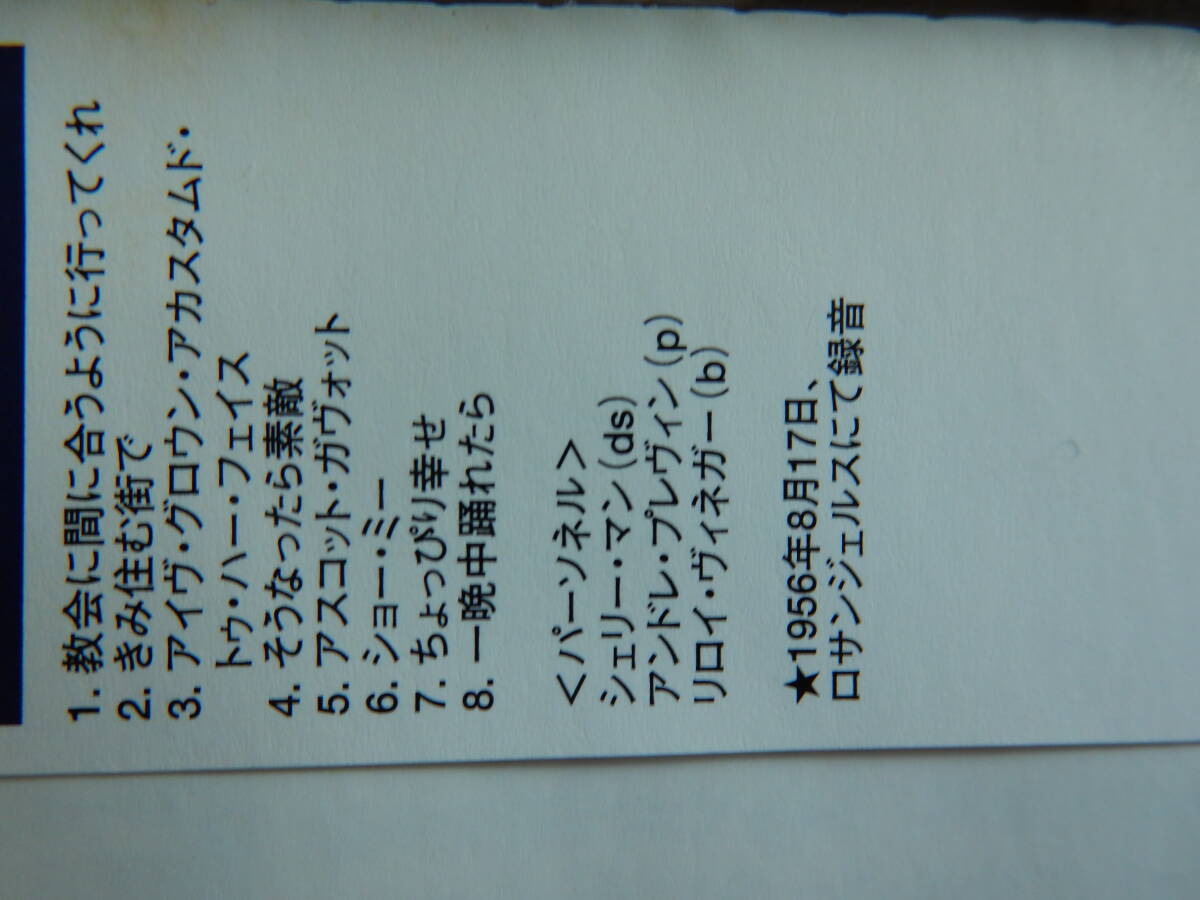 1. 教会に間に合うように行ってくれ
2. きみ住む街で
3. アイヴ・グロウン・アカスタムド・
トゥ・ハー・フェイス
4. そうなったら素敵
5. アスコット・ガヴォット
6. ショー・ミー
7. ちょっぴり幸せ
8. 一晩中踊れたら
＜パーソネル＞
シェリー・マン(ds)
アンドレ・プレヴィン(p)
リロイ・ヴィネガー(b)
★1956年8月17日、
ロサンジェルスにて録音